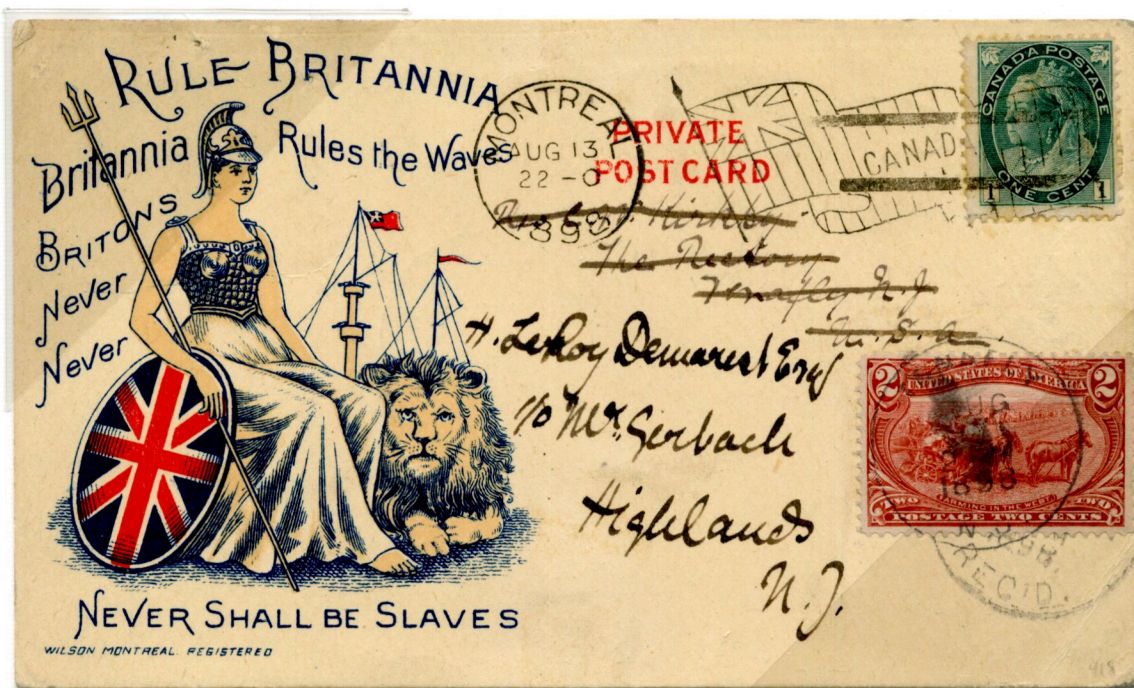 RULE BRITANNIA
Britannia Rules the Waves
BRITONS
Never
Never
NEVER SHALL BE SLAVES
WILSON MONTREAL. REGISTERED
MONTREAL
AUG 13
22-0
1898
PRIVATE
POST CARD
CANADA
CANADA POSTAGE
1 ONE CENT 1
The Rectory
Tenafly N.J
U.S.A.
H. LeRoy Demarest Esq
c/o Mr. Gerbach
Highlands
N.J.
2 UNITED STATES OF AMERICA 2
FARMING IN THE WEST.
TWO TWO
POSTAGE TWO CENTS
AUG
1898
1898.
REC'D.
418